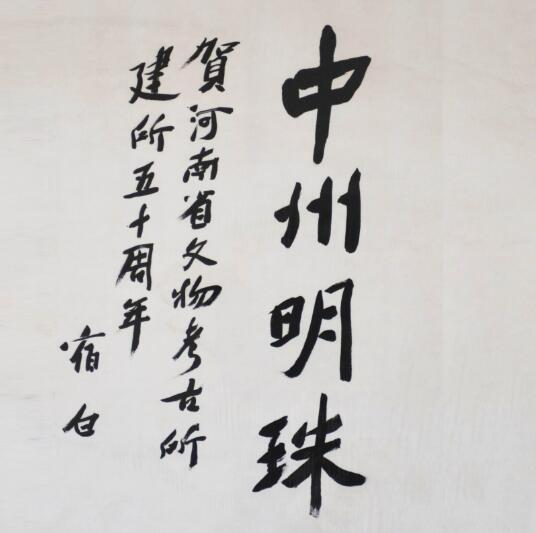 中州明珠
賀河南省文物考古所
建所五十周年
宿白